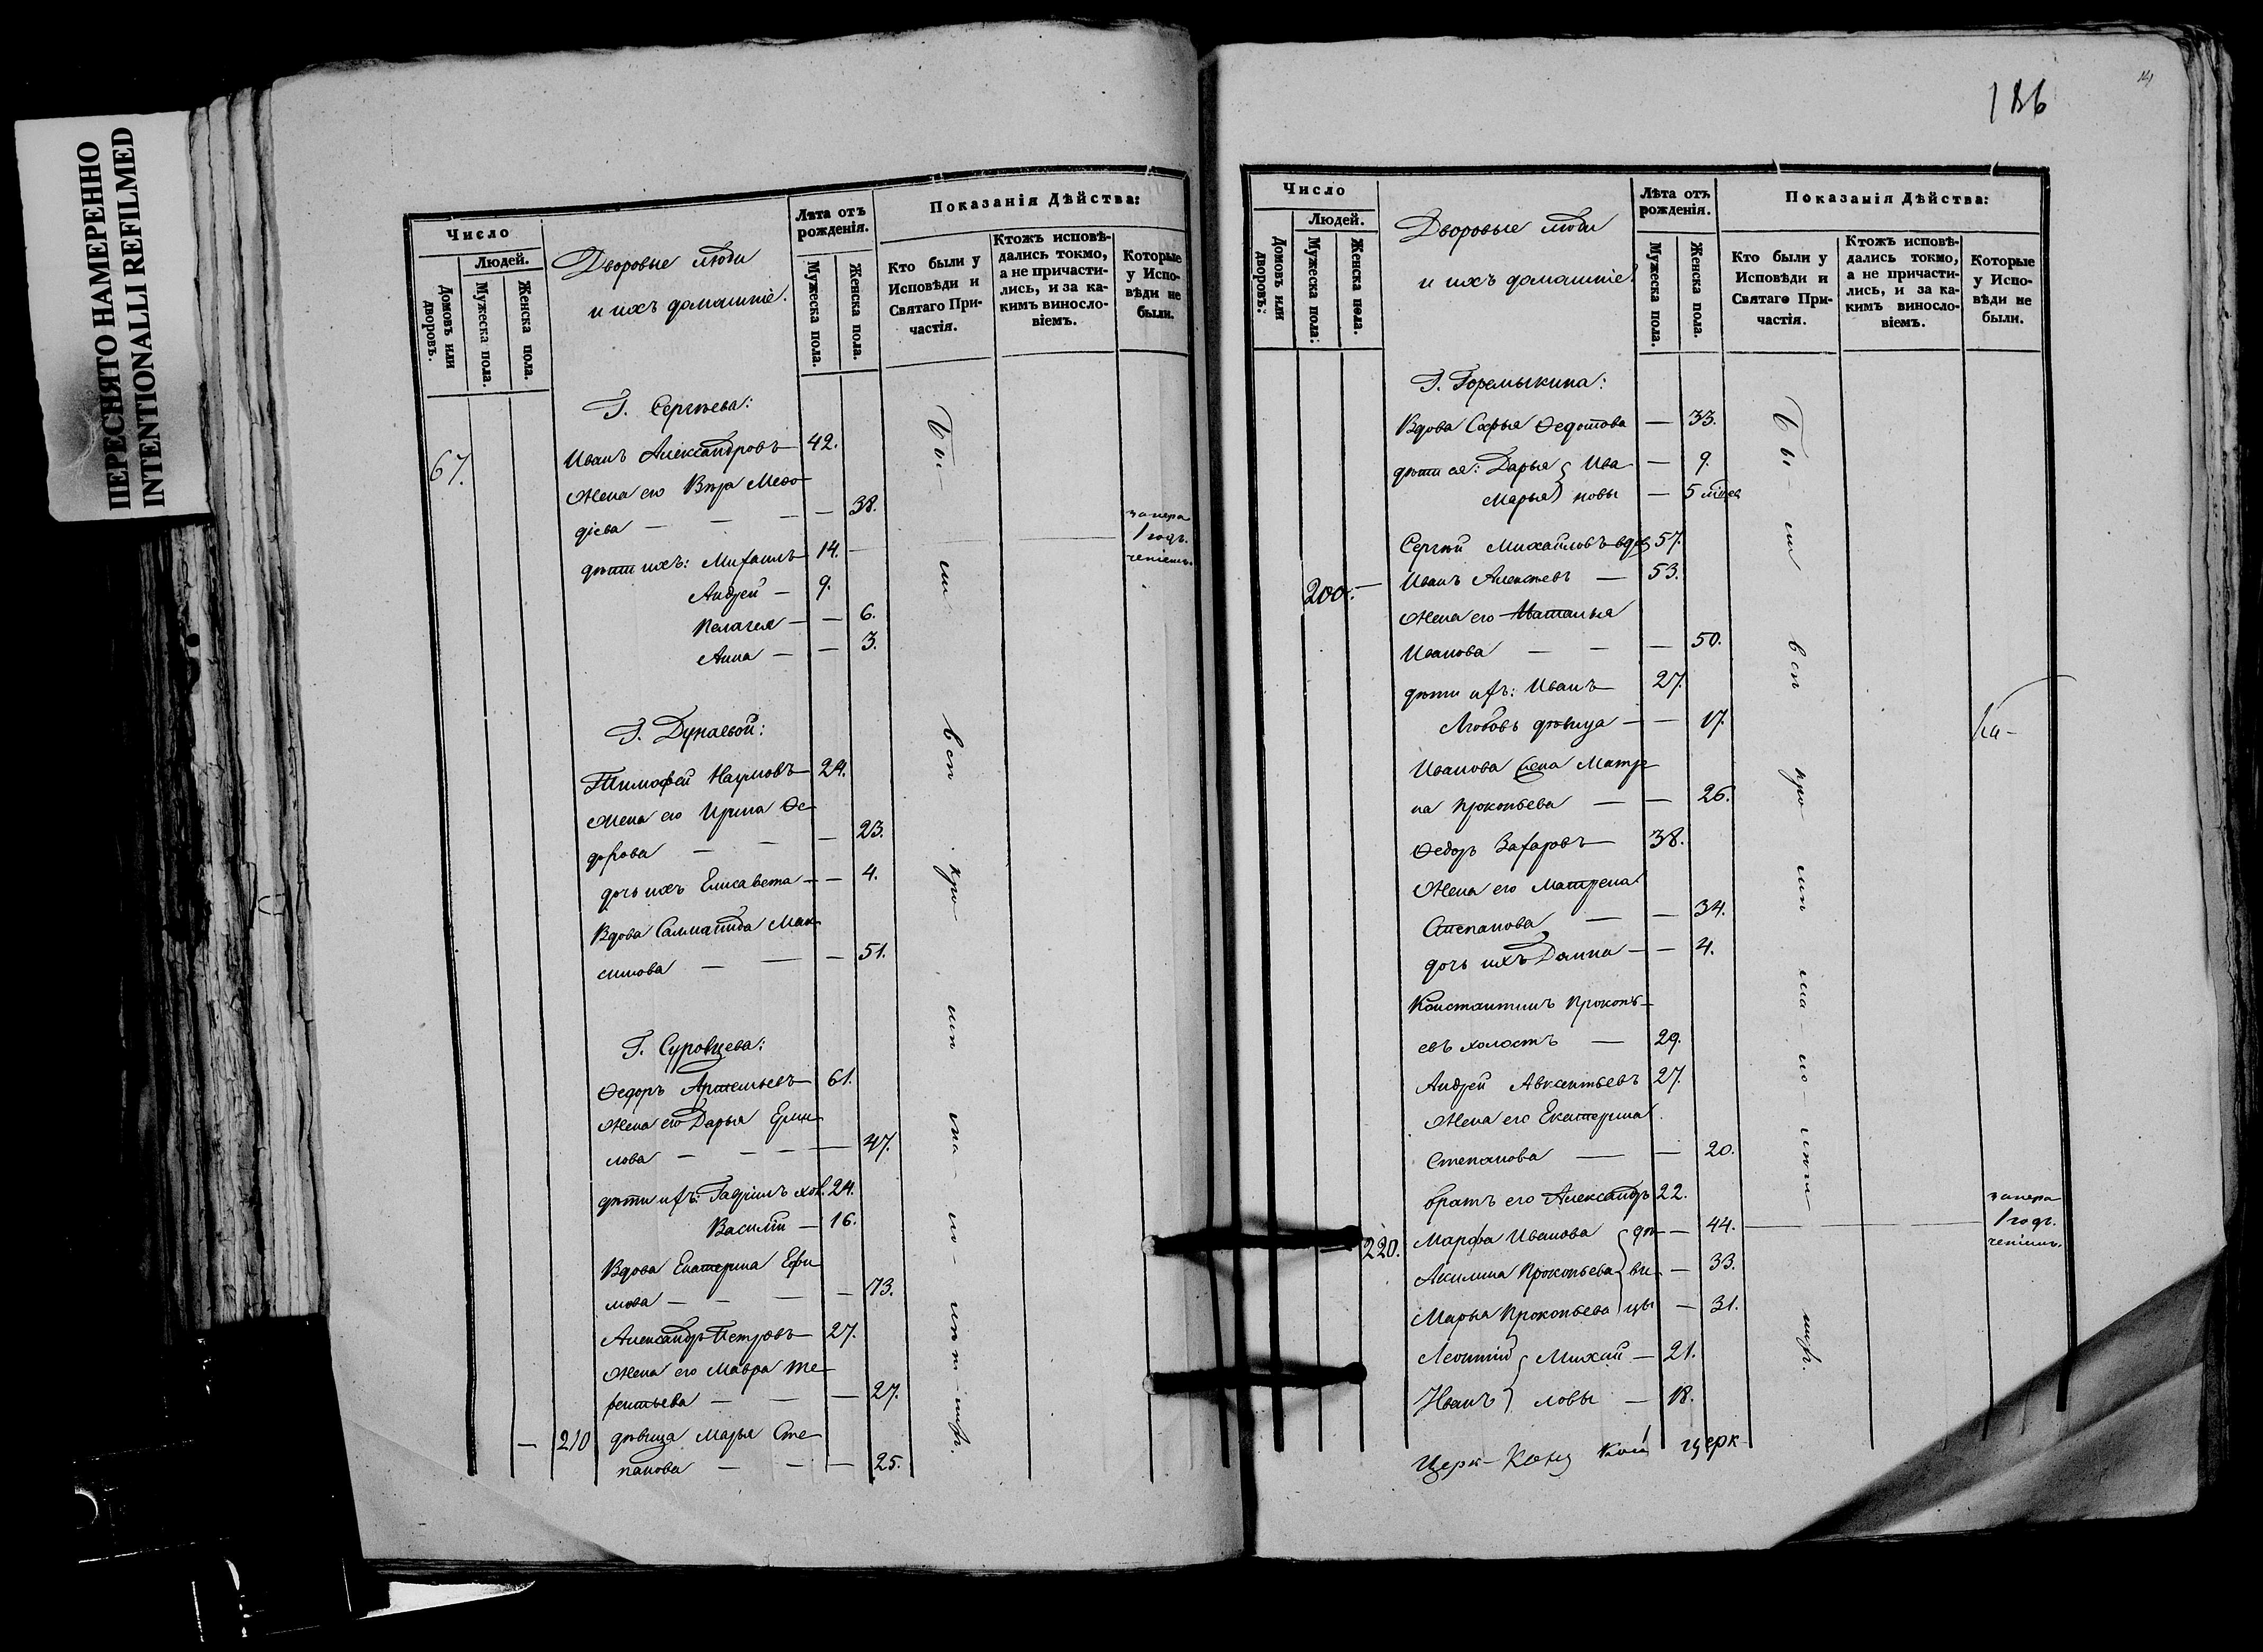 ПЕРЕСНЯТО НАМЕРЕННО
INTENTIONALLI REFILMED
Число
Людей.
Домовъ или дворовъ.
Мужеска пола.
Женска пола.
Дворовые люди
и ихъ домашніе.
Лѣта отъ рожденія.
Мужеска пола.
Женска пола.
Показанія Дѣйства:
Кто были у Исповѣди и Святаго При-частія.
Ктожъ исповѣ-дались токмо, а не причасти-лись, и за ка-кимъ винословіемъ.
Которые у Испо-вѣди не были.
Г. Сергѣева:
67. Иванъ Александровъ — 42.
Жена его Вѣра Меѳо-
діева — — — — 38.
дѣти ихъ: Михаилъ — 14. —
Андрей — 9.
Пелагея — — 6.
Анна — — 3.
Г. Дунаевой:
Тимофей Наумовъ — 24.
Жена его Ирина Ѳе-
дорова — — — 23.
дочь ихъ Елисавета — — 4.
Вдова Саломанида Мак-
симова — — — 51.
Г. Суровцева:
Ѳедоръ Артемьевъ — 61.
Жена его Дарья Ерми-
лова — — — — 47.
дѣти ихъ: Гавріилъ хол. 24.
Василій — 16.
Вдова Екатерина Ефи-
мова — — — — 73.
Александръ Петровъ — 27.
Жена его Мавра Те-
рентьева — — — 27.
— 210 дѣвица Марья Сте-
панова — — — 25.
Бы-
ли
всѣ
кро-
мѣ
ма-
ло-
лѣт-
нихъ.
186
Число
Людей.
Домовъ или дворовъ:
Мужеска пола:
Женска пола.
Дворовые люди
и ихъ домашніе
Лѣта отъ рожденія.
Мужеска пола.
Женска пола.
Показанія Дѣйства:
Кто были у Исповѣди и Святаго При-частія.
Ктожъ исповѣ-дались токмо, а не причасти-лись, и за ка-кимъ винословіемъ.
Которые у Испо-вѣди не были.
Г. Горемыкина:
Вдова Софья Ѳедотова — 33.
дѣти ея: Дарья } Ива — 9.
Марья } новы — 5
Сергѣй Михайловъ вдов 57.
200. — Иванъ Алексѣевъ — 53.
Жена его Наталья
Иванова — — — 50.
дѣти ихъ: Иванъ — 27.
Любовь дѣвица — — 17.
Иванова жена Матре
на Прокопьева — — 26.
Ѳедоръ Захаровъ — 38.
Жена его Матрена
Степанова — — 34.
дочь ихъ Домна — — 4.
Константинъ Прокопь-
евъ холостъ — 29.
Андрей Авксентьевъ 27.
Жена его Екатерина
Степанова — — 20.
братъ его Александръ 22.
— 220. Марѳа Иванова } дѣ — 44.
Акилина Прокопьева } ви — 33.
Марья Прокопьева } цы — 31.
Леонтій } Михай — 21.
Иванъ } ловы — 18.
Бы-
ли
всѣ
кро-
мѣ
ма-
ло-
лѣт-
нихъ.